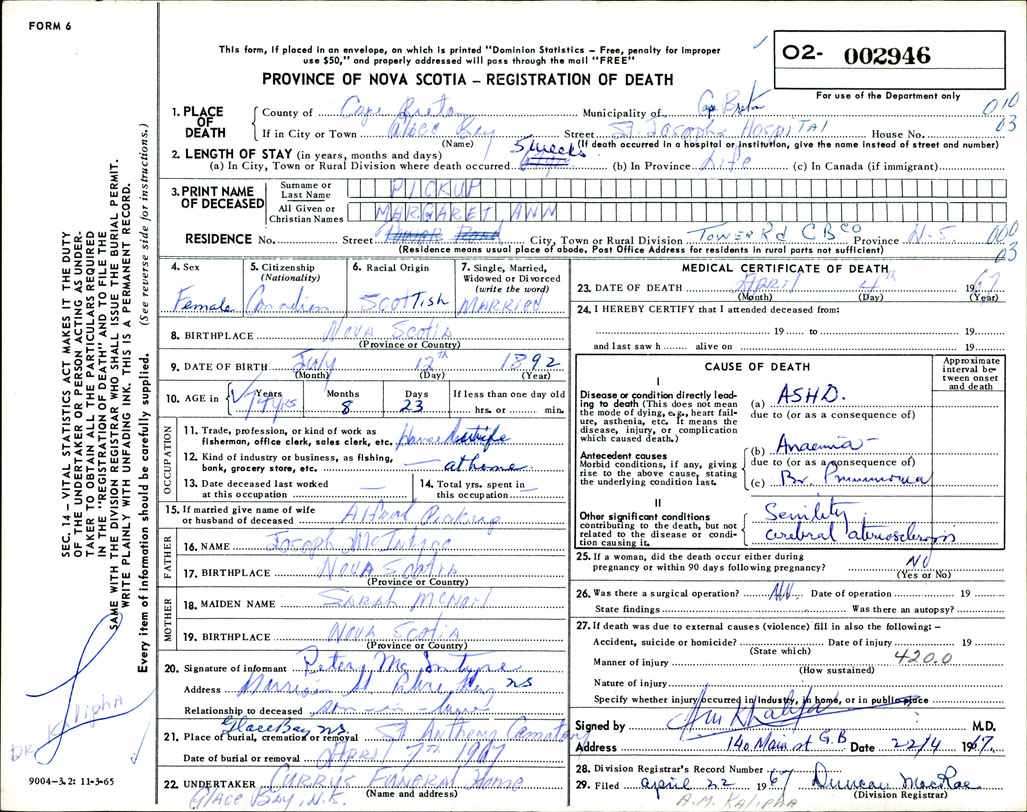 FORM 6
This form, if placed in an envelope, on which is printed "Dominion Statistics – Free, penalty for improper
use $50," and properly addressed will pass through the mail "FREE"
PROVINCE OF NOVA SCOTIA – REGISTRATION OF DEATH
O2- 002946
For use of the Department only
1. PLACE OF DEATH
County of Cape Breton Municipality of Cape Breton 010
03
If in City or Town Glace Bay Street St. Josephs Hospital House No.
(Name) (If death occurred in a hospital or institution, give the name instead of street and number)
2. LENGTH OF STAY (in years, months and days)
(a) In City, Town or Rural Division where death occurred 5 weeks (b) In Province Life (c) In Canada (if immigrant)
3. PRINT NAME OF DECEASED
Surname or Last Name PICKUP
All Given or Christian Names MARGARET, ANN
RESIDENCE No. Street City, Town or Rural Division Tower Rd C.B Co Province N-S 000
03
(Residence means usual place of abode. Post Office Address for residents in rural parts not sufficient)
4. Sex Female
5. Citizenship (Nationality) Canadian
6. Racial Origin Scottish
7. Single, Married, Widowed or Divorced (write the word) MARRIED
8. BIRTHPLACE Nova Scotia
(Province or Country)
9. DATE OF BIRTH July 12th 1892
(Month) (Day) (Year)
10. AGE in Years 74 yrs Months 8 Days 23 If less than one day old hrs. or min.
OCCUPATION
11. Trade, profession, or kind of work as fisherman, office clerk, sales clerk, etc.
12. Kind of industry or business, as fishing, bank, grocery store, etc. — at home
13. Date deceased last worked at this occupation —
14. Total yrs. spent in this occupation —
15. If married give name of wife or husband of deceased Alfred
FATHER
16. NAME Joseph McIntyre
17. BIRTHPLACE Nova Scotia
(Province or Country)
MOTHER
18. MAIDEN NAME Sarah McNeil
19. BIRTHPLACE Nova Scotia
(Province or Country)
20. Signature of informant Peter McIntyre
Address Morrison St Glace Bay NS
Relationship to deceased
21. Place of burial, cremation or removal Glace Bay N.S. St Anthony
Date of burial or removal April 7th 1967
22. UNDERTAKER Currys Funeral Home
Glace Bay, N.S. (Name and address)
MEDICAL CERTIFICATE OF DEATH
23. DATE OF DEATH April 4th 1967
(Month) (Day) (Year)
24. I HEREBY CERTIFY that I attended deceased from:
19 to 19
and last saw h alive on 19
CAUSE OF DEATH
Approximate interval between onset and death
I
Disease or condition directly leading to death (This does not mean the mode of dying, e.g., heart failure, asthenia, etc. It means the disease, injury, or complication which caused death.)
(a) ASHD.
due to (or as a consequence of)
Antecedent causes
Morbid conditions, if any, giving rise to the above cause, stating the underlying condition last.
(b) Anaemia -
due to (or as a consequence of)
(c) Br. Pneumonia
II
Other significant conditions
contributing to the death, but not related to the disease or condition causing it.
Senility
cerebral aterioslerosis
25. If a woman, did the death occur either during pregnancy or within 90 days following pregnancy? NO
(Yes or No)
26. Was there a surgical operation? NO Date of operation 19
State findings Was there an autopsy?
27. If death was due to external causes (violence) fill in also the following:–
Accident, suicide or homicide? Date of injury 19
(State which)
Manner of injury 420.0
(How sustained)
Nature of injury
Specify whether injury occurred in industry, in home, or in public place
Signed by AM Khalifa M.D.
Address 140 Main st G.B Date 22/4 1967.
28. Division Registrar's Record Number
29. Filed april 22 1967 Duncan MacRae
(Division Registrar)
A.M. KALIPHA
SEC. 14 – VITAL STATISTICS ACT MAKES IT THE DUTY
OF THE UNDERTAKER OR PERSON ACTING AS UNDER-
TAKER TO OBTAIN ALL THE PARTICULARS REQUIRED
IN THE "REGISTRATION OF DEATH" AND TO FILE THE
SAME WITH THE DIVISION REGISTRAR WHO SHALL ISSUE THE BURIAL PERMIT.
WRITE PLAINLY WITH UNFADING INK. THIS IS A PERMANENT RECORD.
Every item of information should be carefully supplied. (See reverse side for instructions.)
DR KALIPHA
9004-3.2: 11-3-65